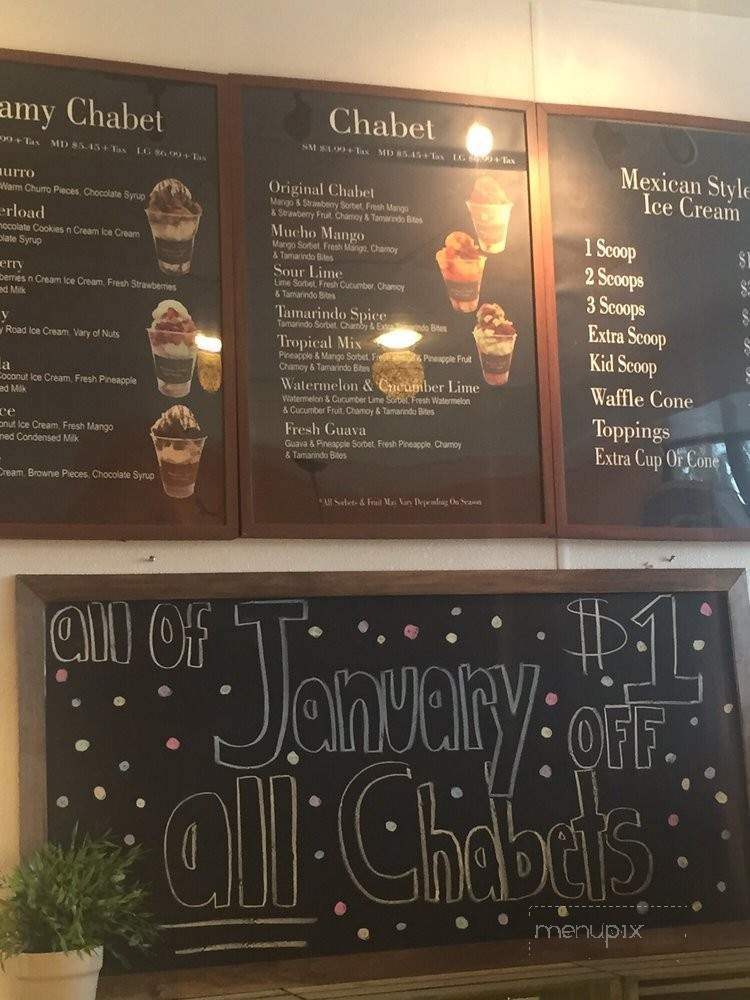 amy Chabet
99+Tax MD $5.45+Tax LG $6.99+Tax
urro
Warm Churro Pieces, Chocolate Syrup
erload
hocolate Cookies n Cream Ice Cream
late Syrup
erry
berries n Cream Ice Cream, Fresh Strawberries
ed Milk
y
y Road Ice Cream, Vary of Nuts
la
oconut Ice Cream, Fresh Pineapple
ed Milk
ce
nut Ice Cream, Fresh Mango
ned Condensed Milk
Cream, Brownie Pieces, Chocolate Syrup
Chabet
SM $3.99+Tax MD $5.45+Tax LG $6.99+Tax
Original Chabet
Mango & Strawberry Sorbet, Fresh Mango
& Strawberry Fruit, Chamoy & Tamarindo Bites
Mucho Mango
Mango Sorbet, Fresh Mango, Chamoy
& Tamarindo Bites
Sour Lime
Lime Sorbet, Fresh Cucumber, Chamoy
& Tamarindo Bites
Tamarindo Spice
Tamarindo Sorbet, Chamoy & Extra Tamarindo Bites
Tropical Mix
Pineapple & Mango Sorbet, Fresh Mango & Pineapple Fruit
Chamoy & Tamarindo Bites
Watermelon & Cucumber Lime
Watermelon & Cucumber Lime Sorbet, Fresh Watermelon
& Cucumber Fruit, Chamoy & Tamarindo Bites
Fresh Guava
Guava & Pineapple Sorbet, Fresh Pineapple, Chamoy
& Tamarindo Bites
*All Sorbets & Fruit May Vary Depending On Season
Mexican Style
Ice Cream
1 Scoop $
2 Scoops $
3 Scoops $
Extra Scoop $
Kid Scoop $
Waffle Cone
Toppings
Extra Cup Or Cone
all Of January $1
OFF
all Chabets
menupix